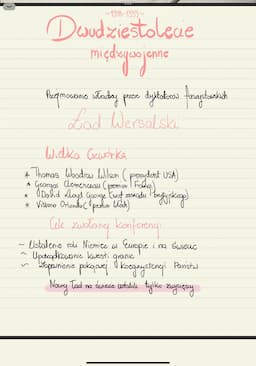 ~1918-1939~
Dwudziestolecie
międzywojenne
Przejmowanie władzy przez dyktatorów faszystowskich
Ład Wersalski
Wielka Czwórka
* Thomas Woodrow Wilson (prezydent USA)
* Georges Clemenceau (premier Francji)
* David Lloyd George (brytyjskiego)
* Vittorio Orlando (premier Włoch)
Cele zwołanej konferencji
~ Ustalenie roli Niemiec w Europie i na świecie
~ Uporządkowanie kwestii granic
~ Zapewnienie pokojowej koegzystencji Państw
Nowy Ład na świecie ustalali tylko zwycięzcy